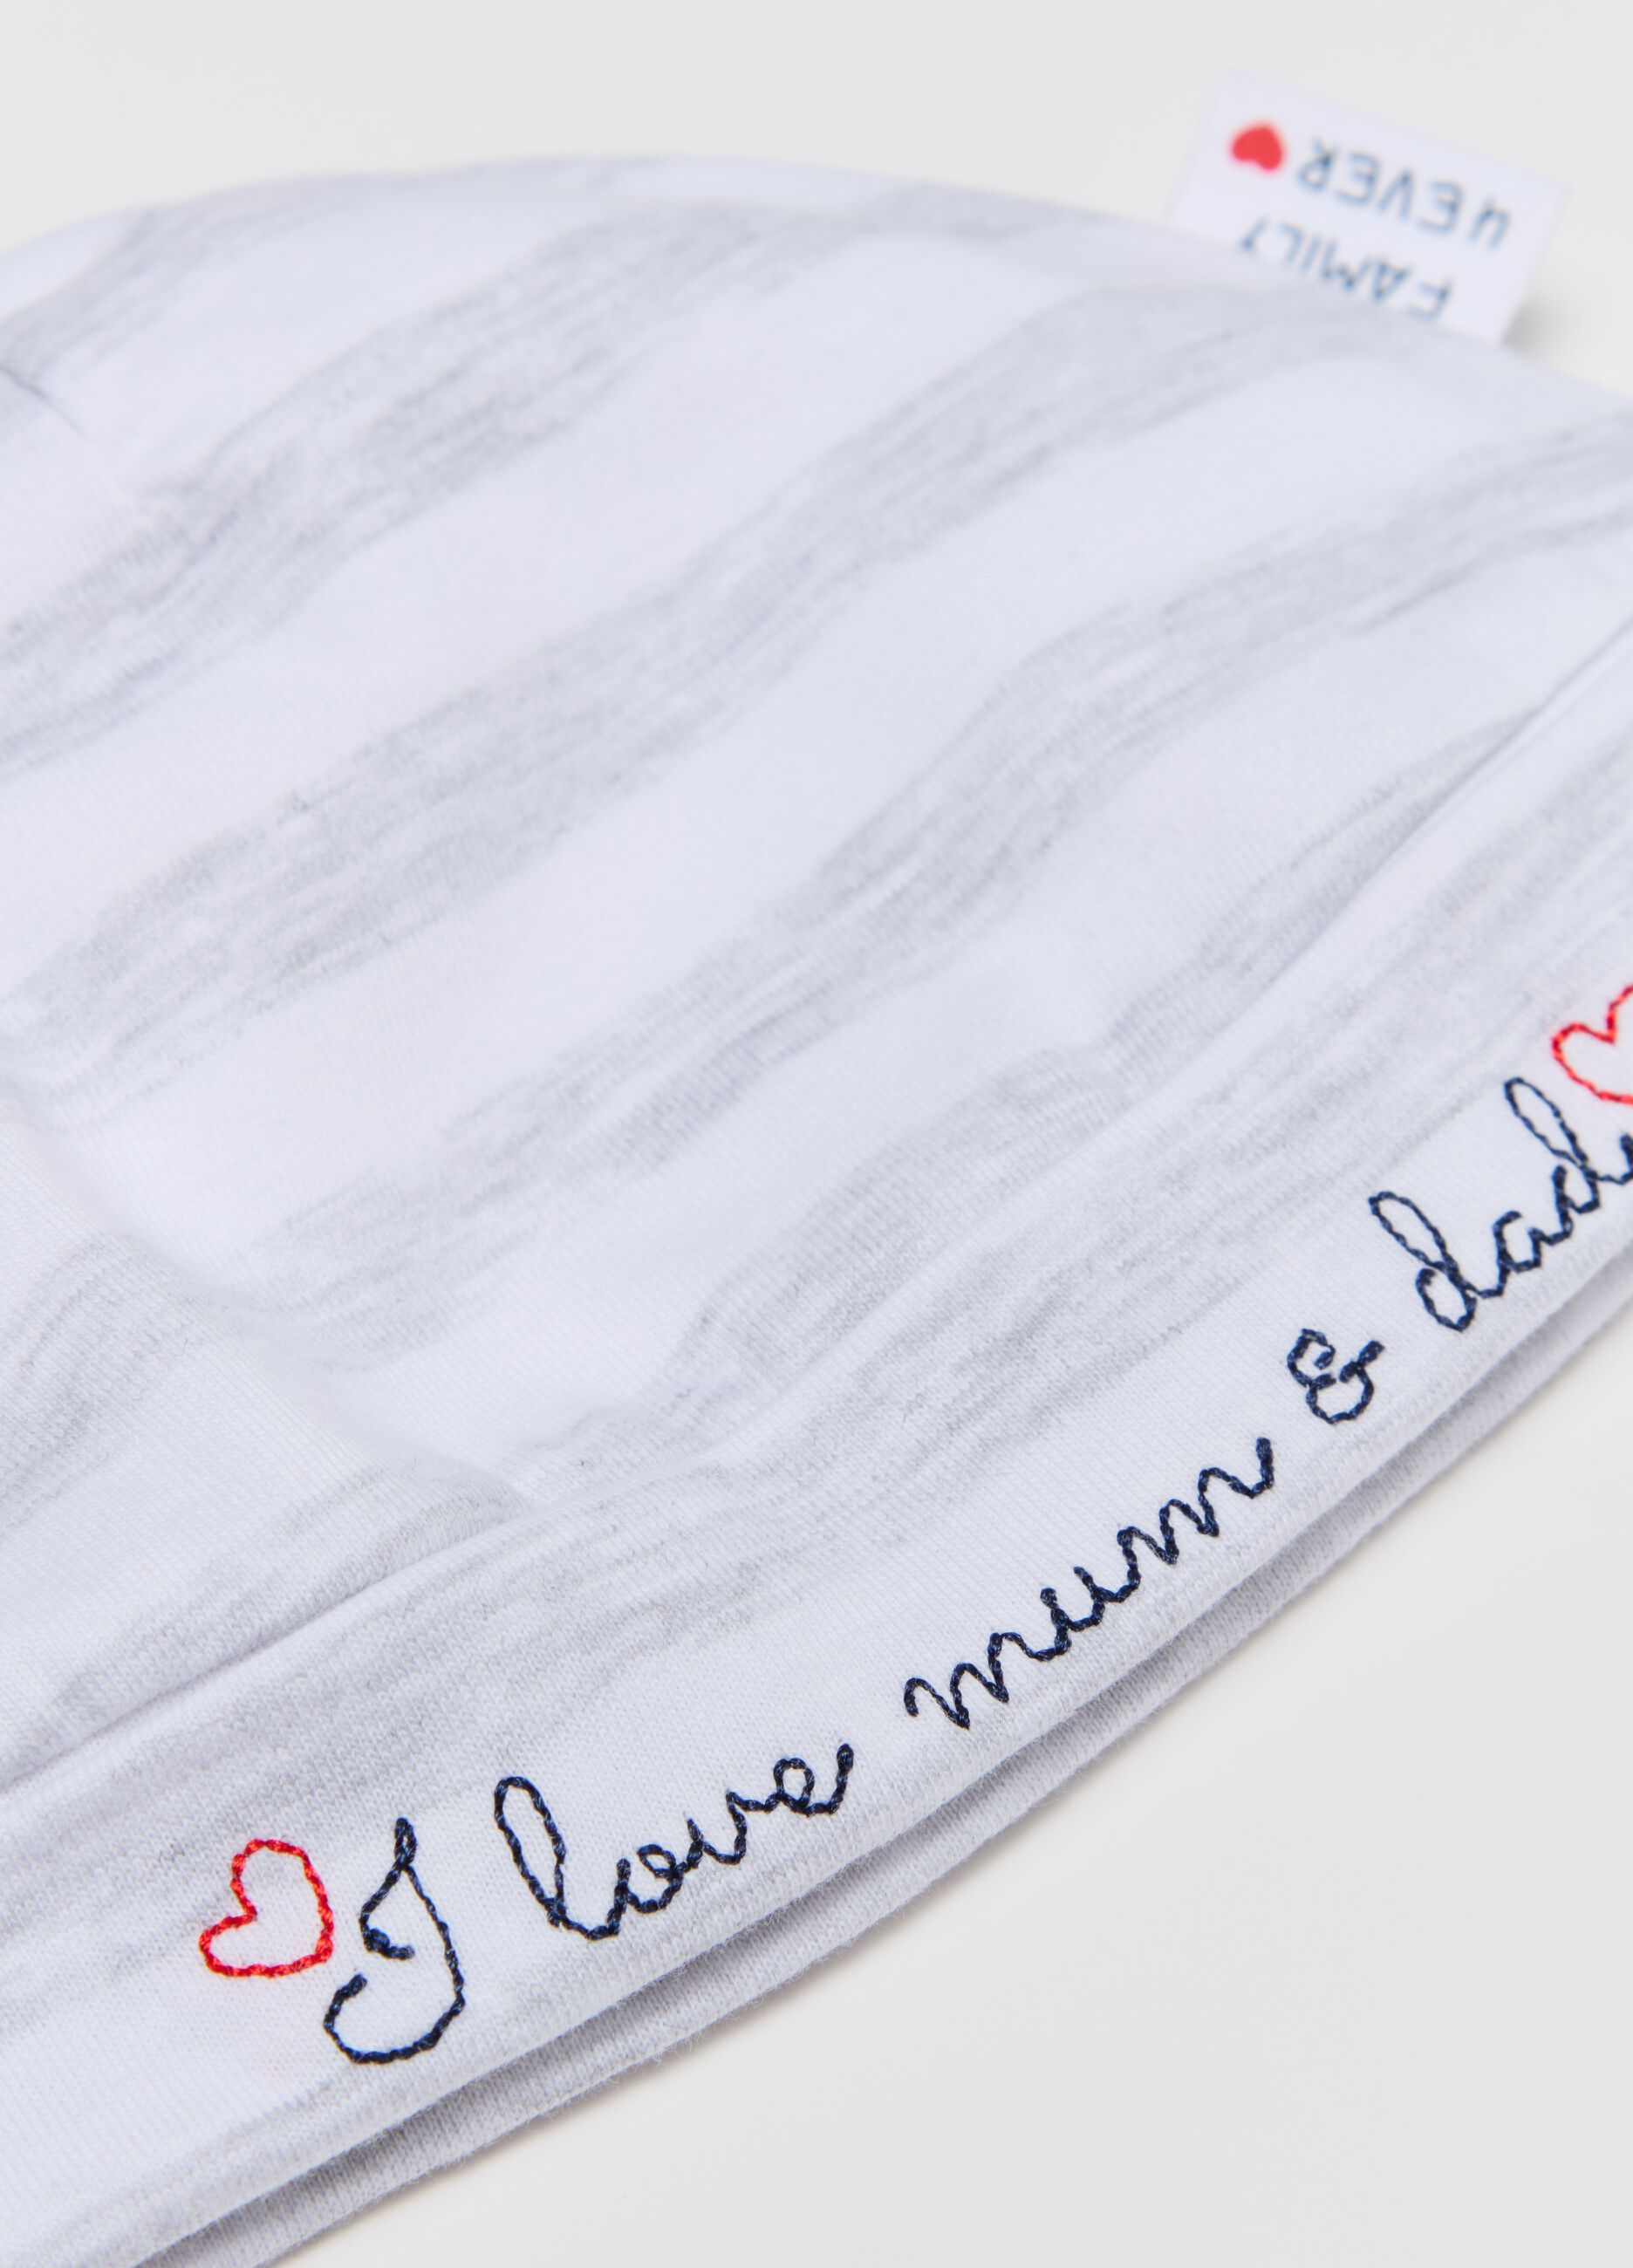 FAMILY
4EVER
I love mum & dad